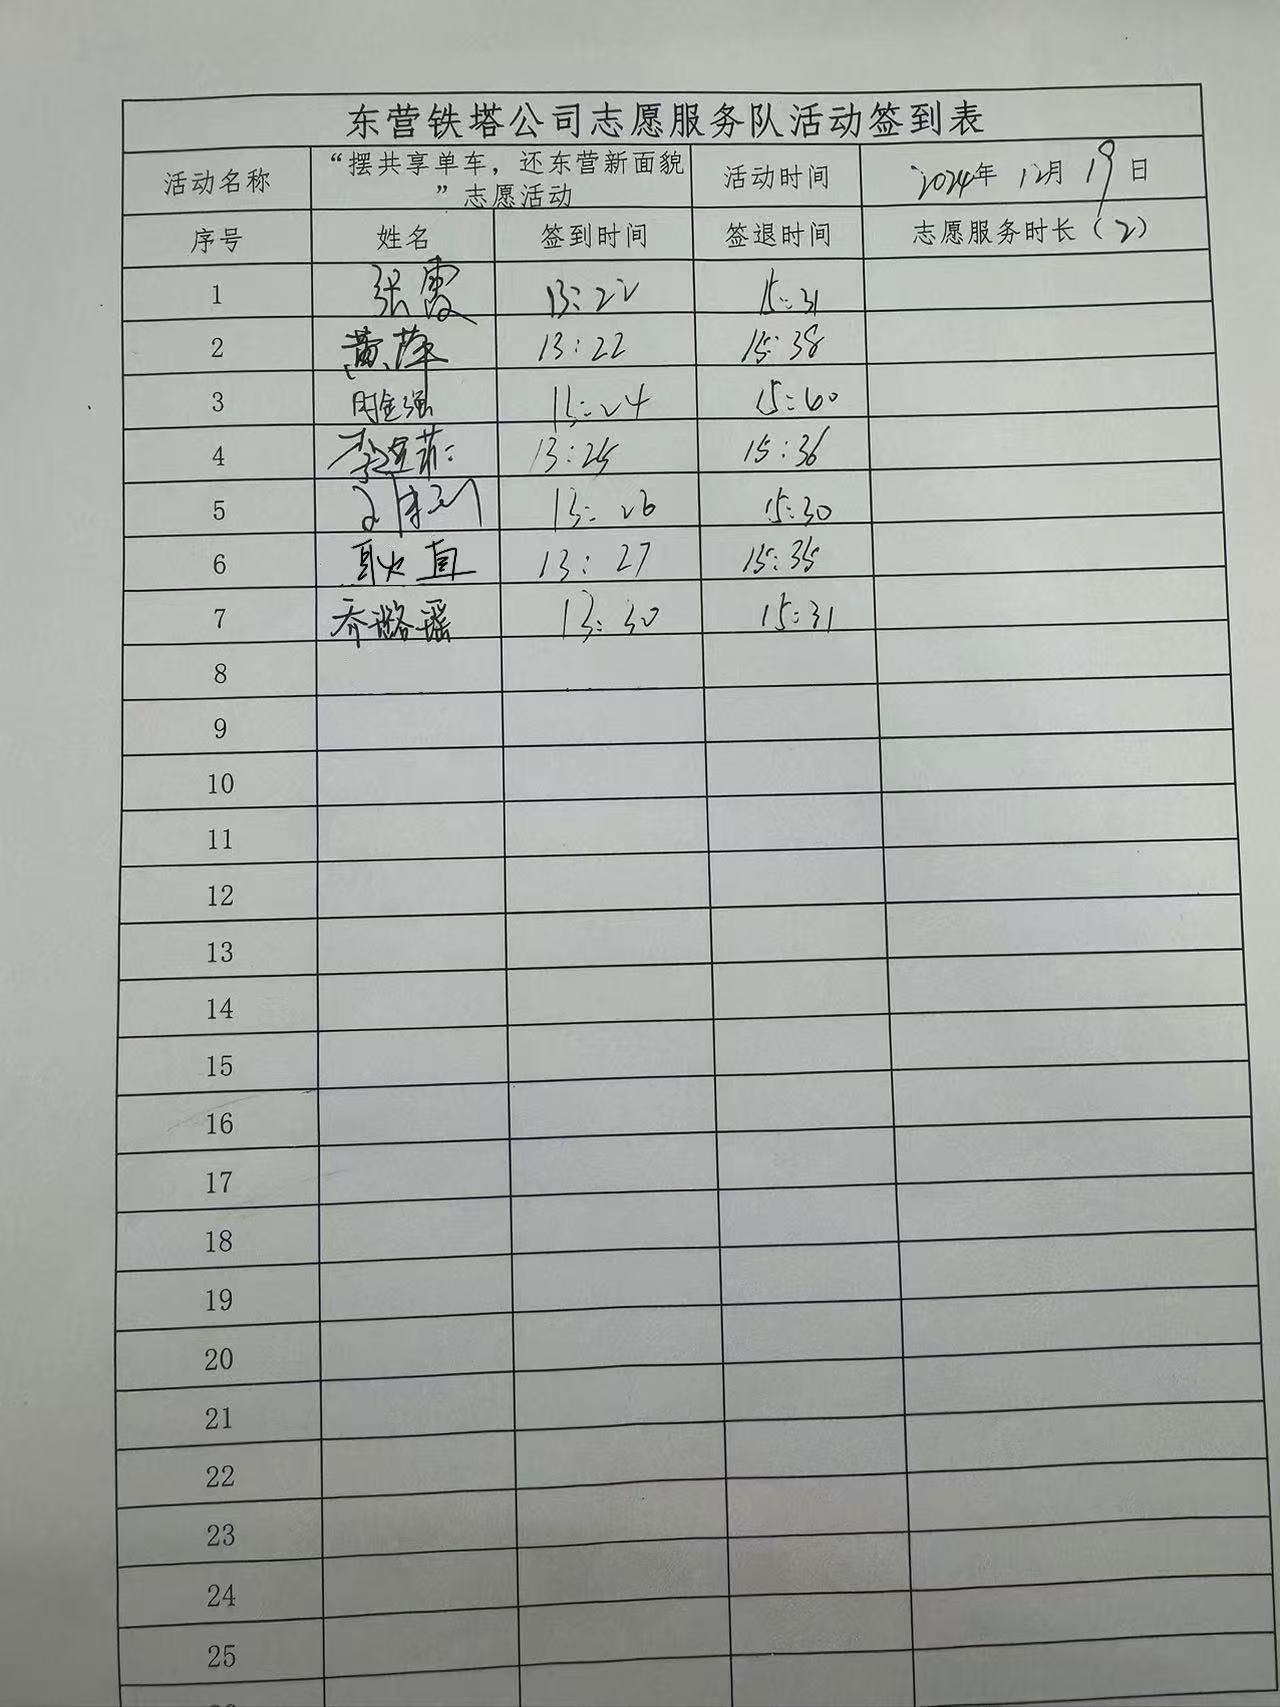 东营铁塔公司志愿服务队活动签到表
活动名称 “摆共享单车，还东营新面貌”志愿活动 活动时间 2024年 12月 19日
序号 姓名 签到时间 签退时间 志愿服务时长（2）
1 张霞 13:22 15:31
2 黄萍 13:22 15:38
3 周金强 13:24 15:60
4 李 菲 13:25 15:36
5 13:26 15:30
6 耿直 13:27 15:35
7 乔璐瑶 13:30 15:31
8
9
10
11
12
13
14
15
16
17
18
19
20
21
22
23
24
25